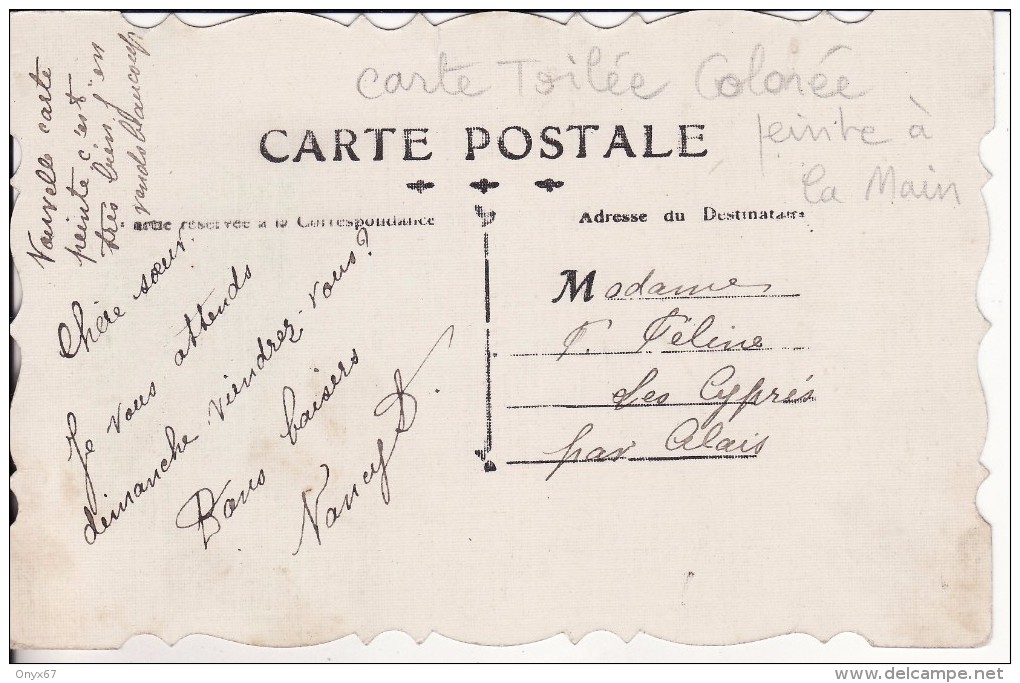 Carte Toilée Colorée
peinte à
la Main
CARTE POSTALE
Partie réservée à la Correspondance
Adresse du Destinataire
Nouvelle carte
peinte c'est
très bien j'en
vends beaucoup
Chère sœur.
Je vous attends
demanche viendrez-vous?
Bons baisers
Nancy D.
Madame
F. Féline
Les Cyprés
par Alais
Onyx67
delcampe.net